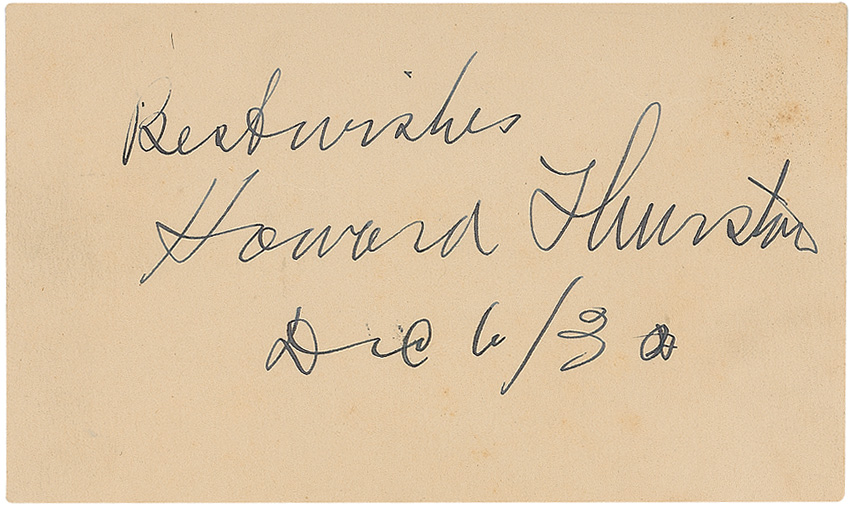 Best wishes
Howard Thurston
Dec 6/30